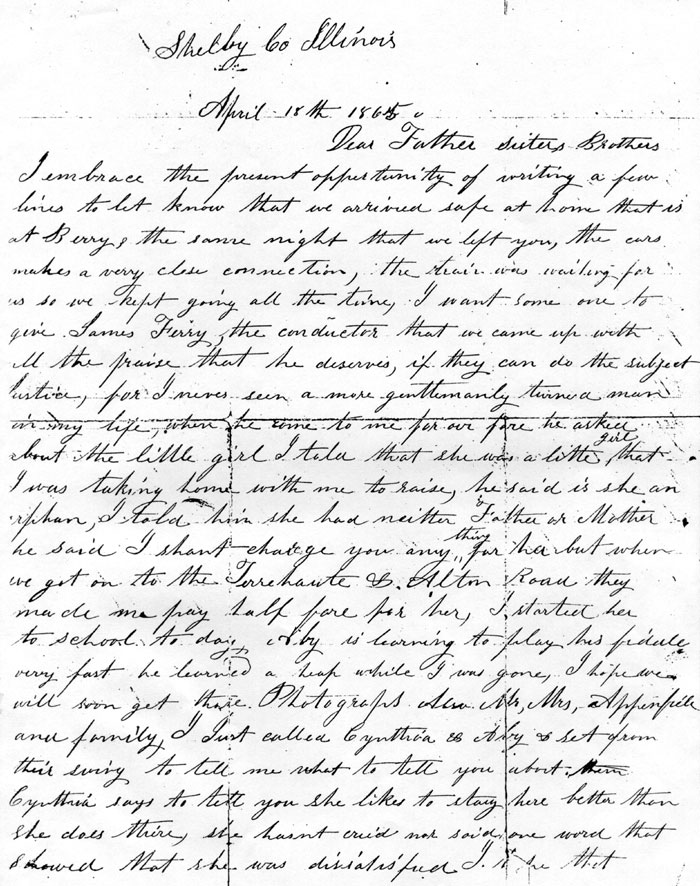 Shelby Co Illinois
April 18th 1865
Dear Father Sisters Brothers
I embrace the present oppertunity of writing a few
lines to let know that we arrivied safe at home that is
at Berry, the same night that we left you, the cars
makes a very close connection, the train was waiting for
us so we kept going all the time, I want some one to
give James Ferry, the conductor that we came up with
all the praise that he deserves, if they can do the subject
Justice, for I never seen a more gentlemanly turned man
in my life, when he come to me for our fare he asked
about the little girl I told that she was a little girl that
I was taking home with me to raise, he said is she an
orphan, I told him she had neither Father or Mother
he said I shant charge you any thing for her but when
we got on to the Terrehaute & Alton Road they
made me pay half fare for her, I started her
to school to day, Aby is learning to play his fiddle
very fast he learned a heap while I was gone, I hope we
will soon get those Photographs Mr, Mrs,
and family, I Just called Cynthia & Aby & set from
their swing to tell me what to tell you about them
Cynthia says to tell you she likes to stay here better than
she does there, she hasnt cried nor said one word that
showed that she was dissatisfied I that